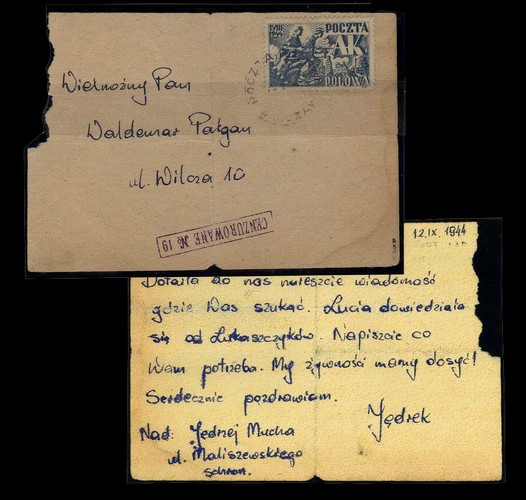 POCZTA
AK
POLOWA
Wielmożny Pan
Waldemar Patgan
ul. Wilcza 10
CENZUROWANE № 19
12.IX.1944
Dotarła do nas nareszcie wiadomość
gdzie Was szukąć. Lucia dowiedziała
się od Łukaszczyków. Napiszcie co
Wam potrzeba. My żywności mamy dosyć!
Serdecznie pozdrawiam.
Jędrek
Nad: Jędrzej Mucha
ul. Maliszewskiego
schron.